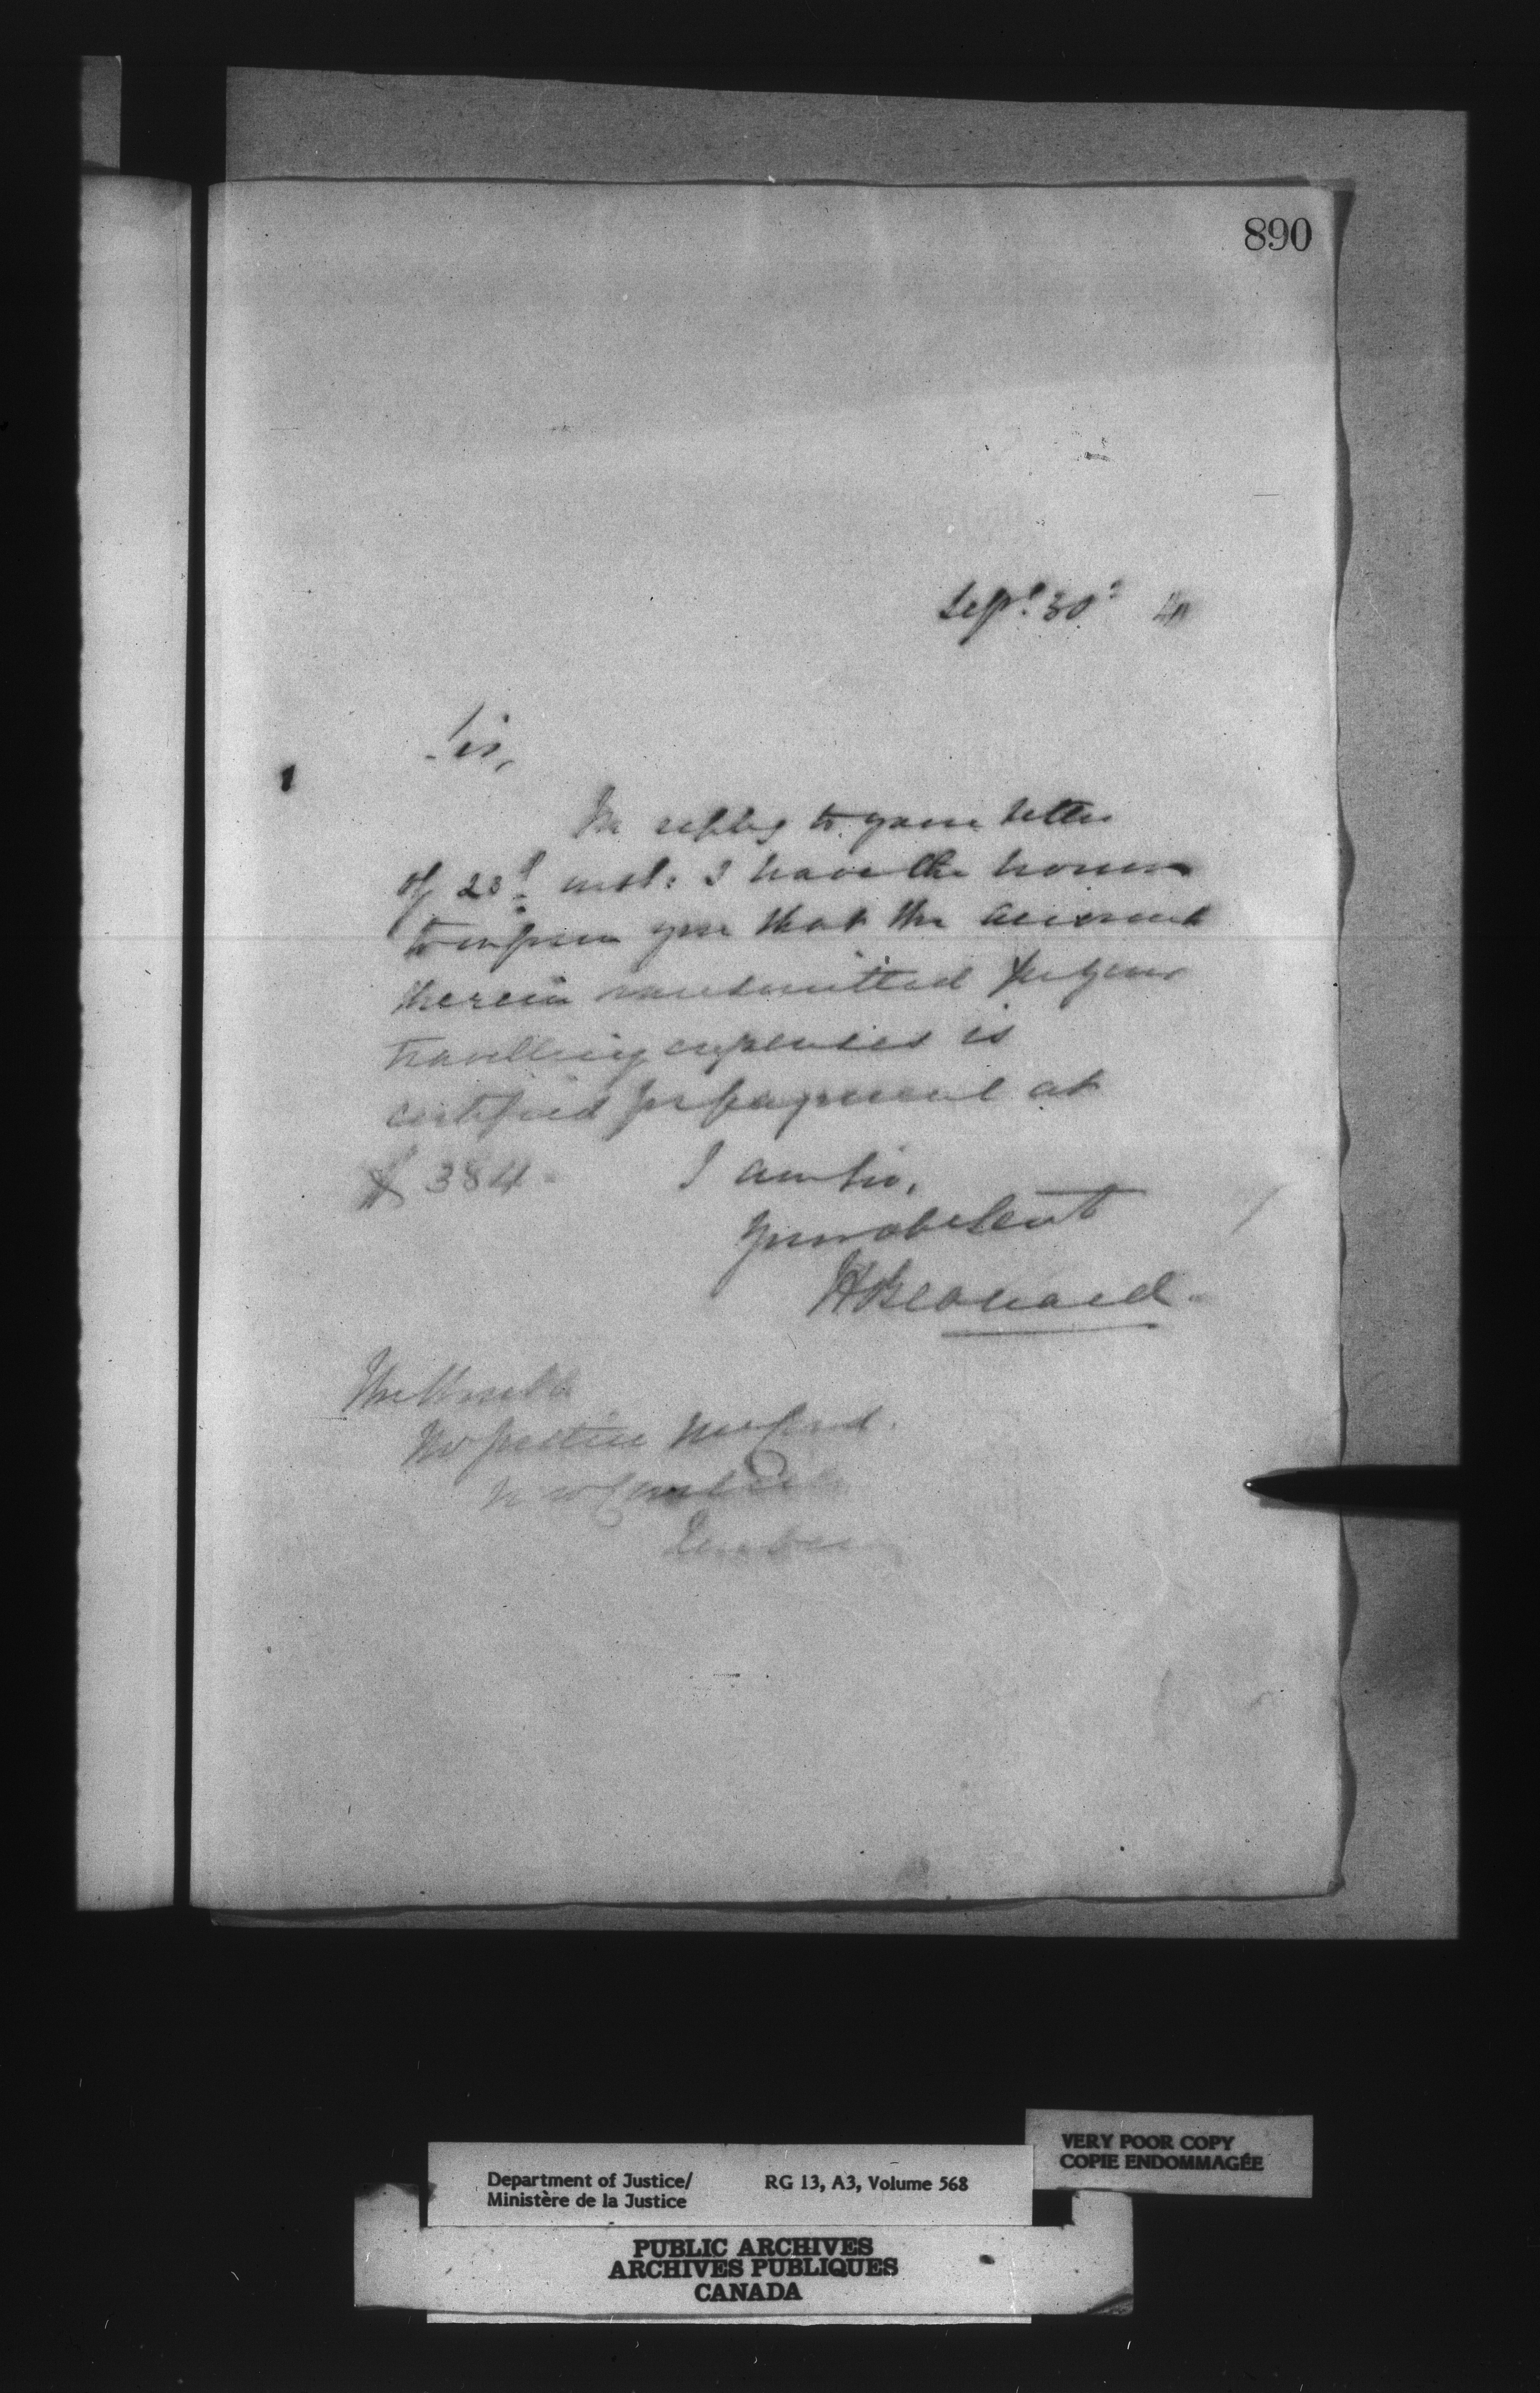 890
Sept. 30th
Sir,
In reply to your letter
of 23d inst. I have the honour
to inform you that the account
therein transmitted for your
travelling expenses is
certified for payment at
$384.
I am Sir,
Your obt Servt
H Bernard.
The Honble
Mr Justice McCord.
New Carlisle
Quebec
Department of Justice/
Ministère de la Justice
RG 13, A3, Volume 568
VERY POOR COPY
COPIE ENDOMMAGÉE
PUBLIC ARCHIVES
ARCHIVES PUBLIQUES
CANADA